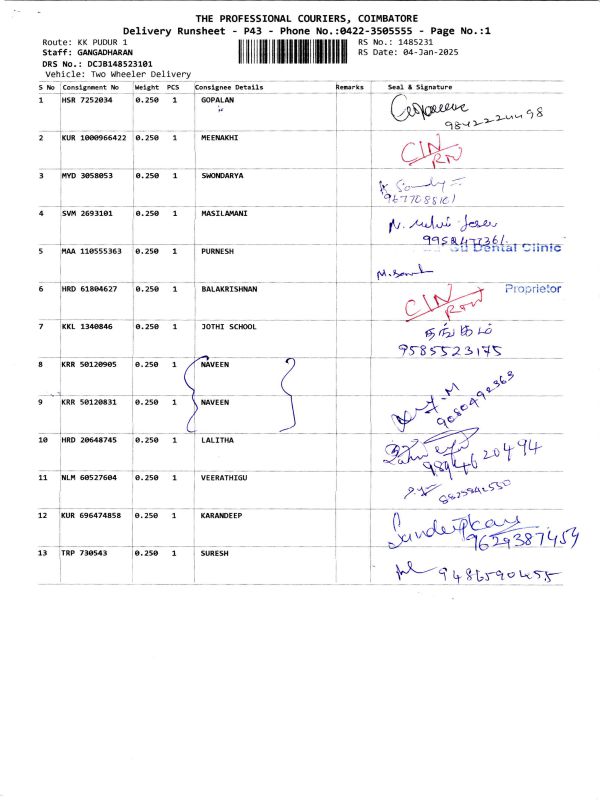 THE PROFESSIONAL COURIERS, COIMBATORE
Delivery Runsheet - P43 - Phone No.:0422-3505555 - Page No.:1
Route: KK PUDUR 1 RS No.: 1485231
Staff: GANGADHARAN RS Date: 04-Jan-2025
DRS No.: DCJB148523101
Vehicle: Two Wheeler Delivery
S No Consignment No Weight PCS Consignee Details Remarks Seal & Signature
1 HSR 7252034 0.250 1 GOPALAN
2 KUR 1000966422 0.250 1 MEENAKHI CIN
3 MYD 3058053 0.250 1 SWONDARYA
9677088101
4 SVM 2693101 0.250 1 MASILAMANI
Dental Clinic
5 MAA 110555363 0.250 1 PURNESH
6 HRD 61804627 0.250 1 BALAKRISHNAN CIN Proprietor
7 KKL 1340846 0.250 1 JOTHI SCHOOL
9585523175
8 KRR 50120905 0.250 1 NAVEEN
9080492363
9 KRR 50120831 0.250 1 NAVEEN
10 HRD 20648745 0.250 1 LALITHA
9894620494
11 NLM 60527604 0.250 1 VEERATHIGU
12 KUR 696474858 0.250 1 KARANDEEP
9629387459
13 TRP 730543 0.250 1 SURESH
9486590455